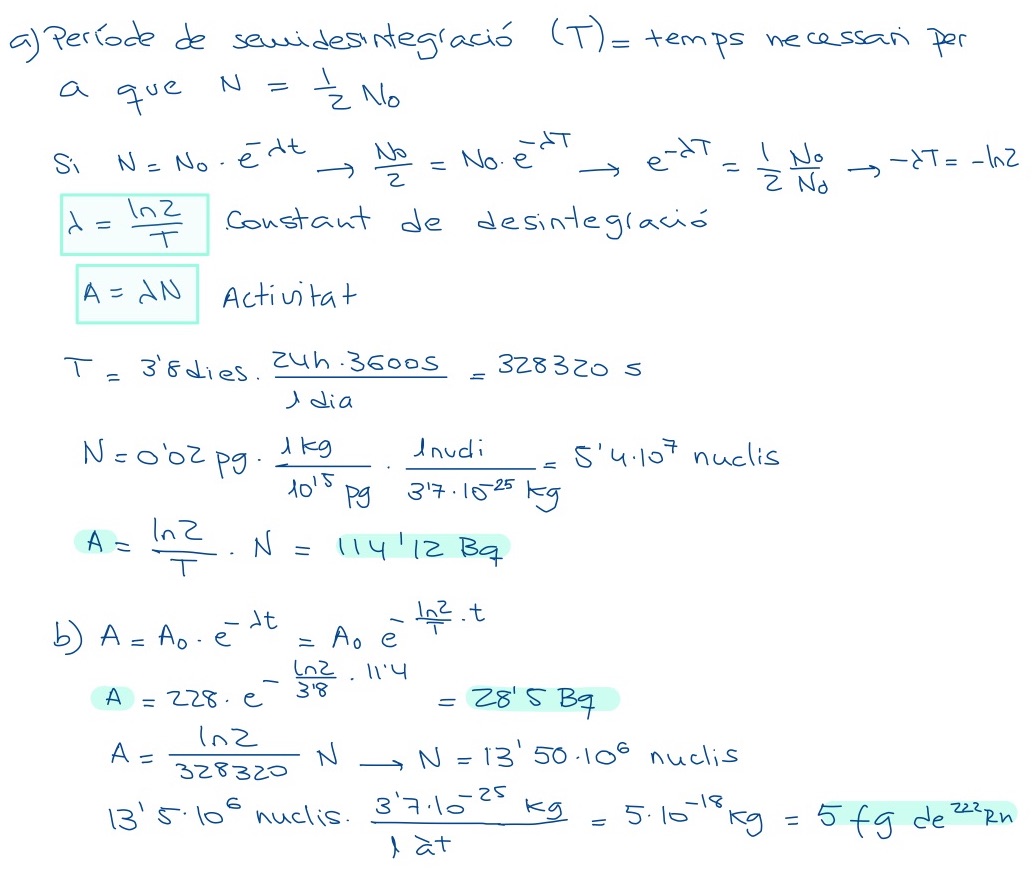 a) Període de semidesintegració (T) = temps necessari per
a que N = 1/2 N₀
Si N = N₀ · e^-λt → N₀/2 = N₀ · e^-λT → e^-λT = 1/2 N₀/N₀ → -λT = -ln2
λ = ln2/T Constant de desintegració
A = λN Activitat
T = 3'8 dies · 24h · 3600s / 1 dia = 328320 s
N = 0'02 pg · 1 kg / 10^15 pg · 1 nucli / 3'7 · 10^-25 kg = 5'4 · 10^7 nuclis
A = ln2/T · N = 114'12 Bq
b) A = A₀ · e^-λt = A₀ e^-ln2/T · t
A = 228 · e^-ln2/3'8 · 11'4 = 28'5 Bq
A = ln2/328320 N → N = 13'50 · 10^6 nuclis
13'5 · 10^6 nuclis · 3'7 · 10^-25 kg / 1 àt = 5 · 10^-18 kg = 5 fg de ²²²Rn